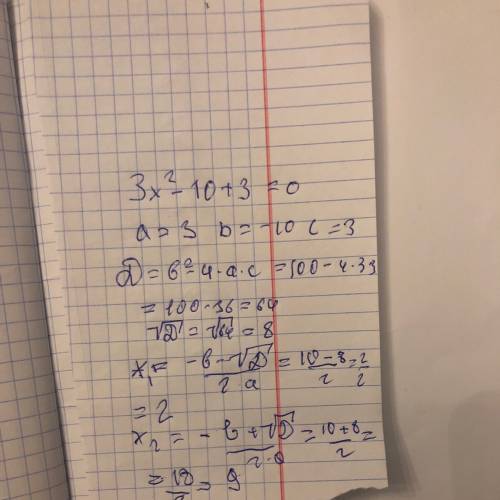 3x² - 10 + 3 = 0
a = 3 b = -10 c = 3
D = b² - 4·a·c = 100 - 4·3·3
= 100 - 36 = 64
√D = √64 = 8
x₁ = -b - √D / 2·a = 10 - 8 / 2 = 2 / 2
= 2
x₂ = -b + √D / 2·a = 10 + 8 / 2 =
= 18 / 2 = 9